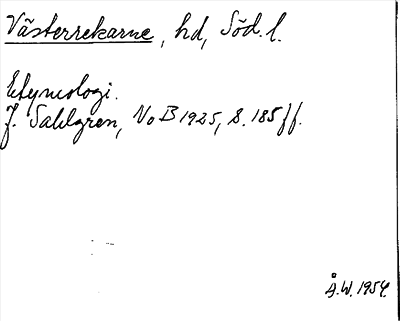 Västerrekarne, hd, Söd. l.
Etymologi.
J. Sahlgren, NoB 1925, s. 185 ff.
Å.W. 1954.